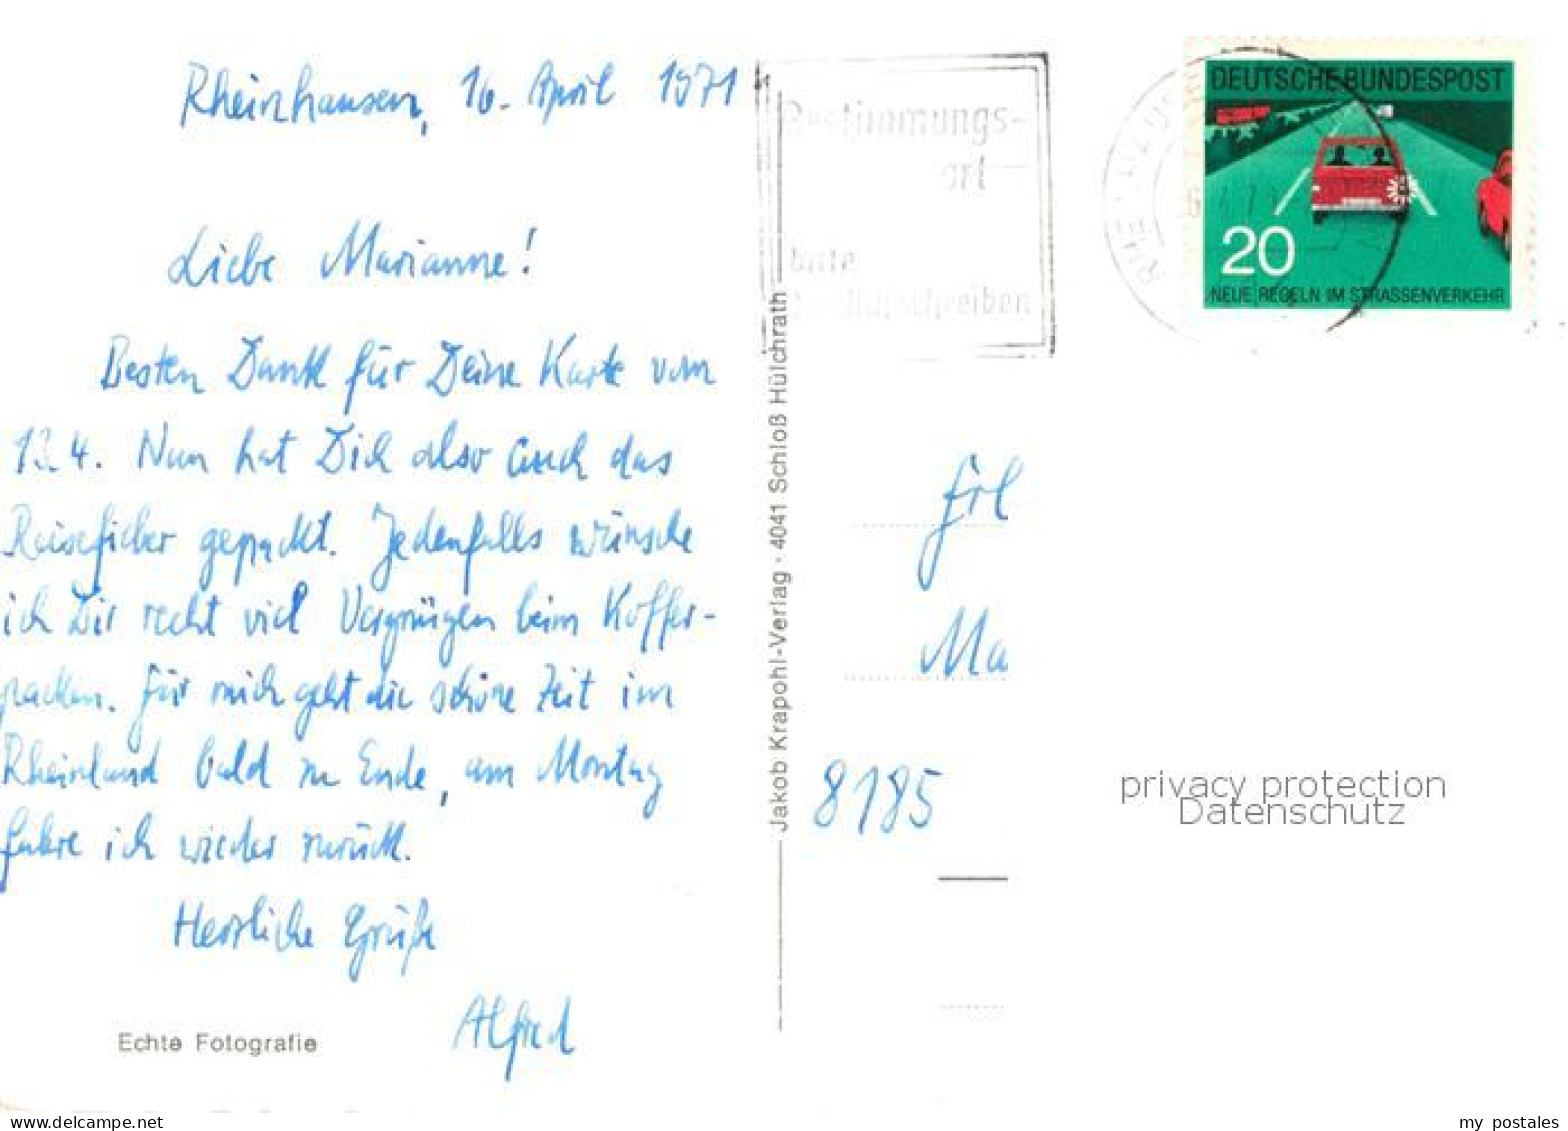 Rheinhausen, 16. April 1971
Liebe Marianne!
Besten Dank für Deine Karte vom
12.4. Nun hat Dich also auch das
Reisefieber gepackt. Jedenfalls wünsche
ich Dir recht viel Vergnügen beim Koffer-
packen. Für mich geht die schöne Zeit im
Rheinland bald zu Ende, am Montag
fahre ich wieder zurück.
Herzliche Grüße
Alfred
Echte Fotografie
Jakob Krapohl-Verlag · 4041 Schloß Hülchrath
Bestimmungs-
ort
bitte
DEUTSCHE BUNDESPOST
20
NEUE REGELN IM STRASSENVERKEHR
Frl
Ma
8185
privacy protection
Datenschutz
www.delcampe.net
my_postales